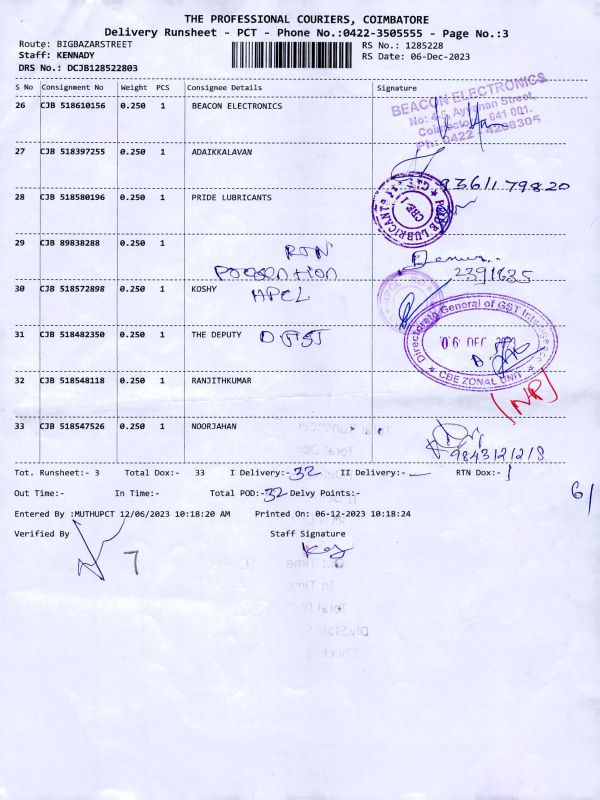 THE PROFESSIONAL COURIERS, COIMBATORE
Delivery Runsheet - PCT - Phone No.:0422-3505555 - Page No.:3
Route: BIGBAZARSTREET RS No.: 1285228
Staff: KENNADY RS Date: 06-Dec-2023
DRS No.: DCJB128522803
S No Consignment No Weight PCS Consignee Details Signature
26 CJB 518610156 0.250 1 BEACON ELECTRONICS
BEACON ELECTRONICS
Street,
641 001.
Ph: 0422 4298305
27 CJB 518397255 0.250 1 ADAIKKALAVAN
93611 79820
28 CJB 518580196 0.250 1 PRIDE LUBRICANTS
PRIDE LUBRICANTS
CBE-1
29 CJB 89838288 0.250 1 RTN
2391635
30 CJB 518572898 0.250 1 KOSHY HPCL
31 CJB 518482350 0.250 1 THE DEPUTY
Directorate General of GST
06 DEC
CBE ZONAL UNIT
32 CJB 518548118 0.250 1 RANJITHKUMAR
NP
33 CJB 518547526 0.250 1 NOORJAHAN
Tot. Runsheet:- 3 Total Dox:- 33 I Delivery:- 32 II Delivery:- RTN Dox:- 1
Out Time:- In Time:- Total POD:- 32 Delvy Points:-
61
Entered By :MUTHUPCT 12/06/2023 10:18:20 AM Printed On: 06-12-2023 10:18:24
Verified By Staff Signature
7